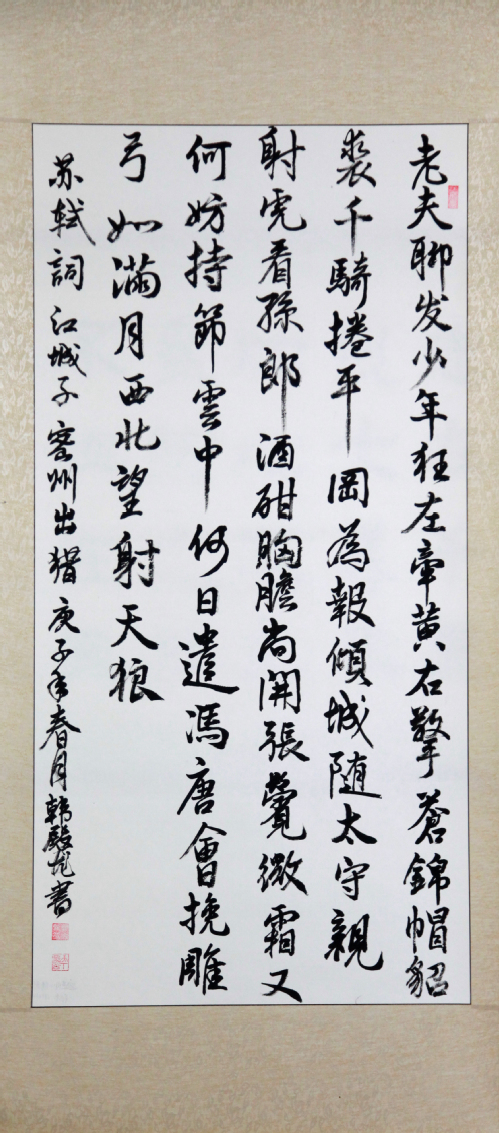 老夫聊发少年狂左牽黄右擎蒼錦帽貂
裘千騎捲平岡為報傾城随太守親
射虎看孫郎酒酣胸膽尚開張鬢微霜又
何妨持節雲中何日遣馮唐會挽雕
弓如滿月西北望射天狼
苏轼詞江城子密州出猎庚子年春月韩書